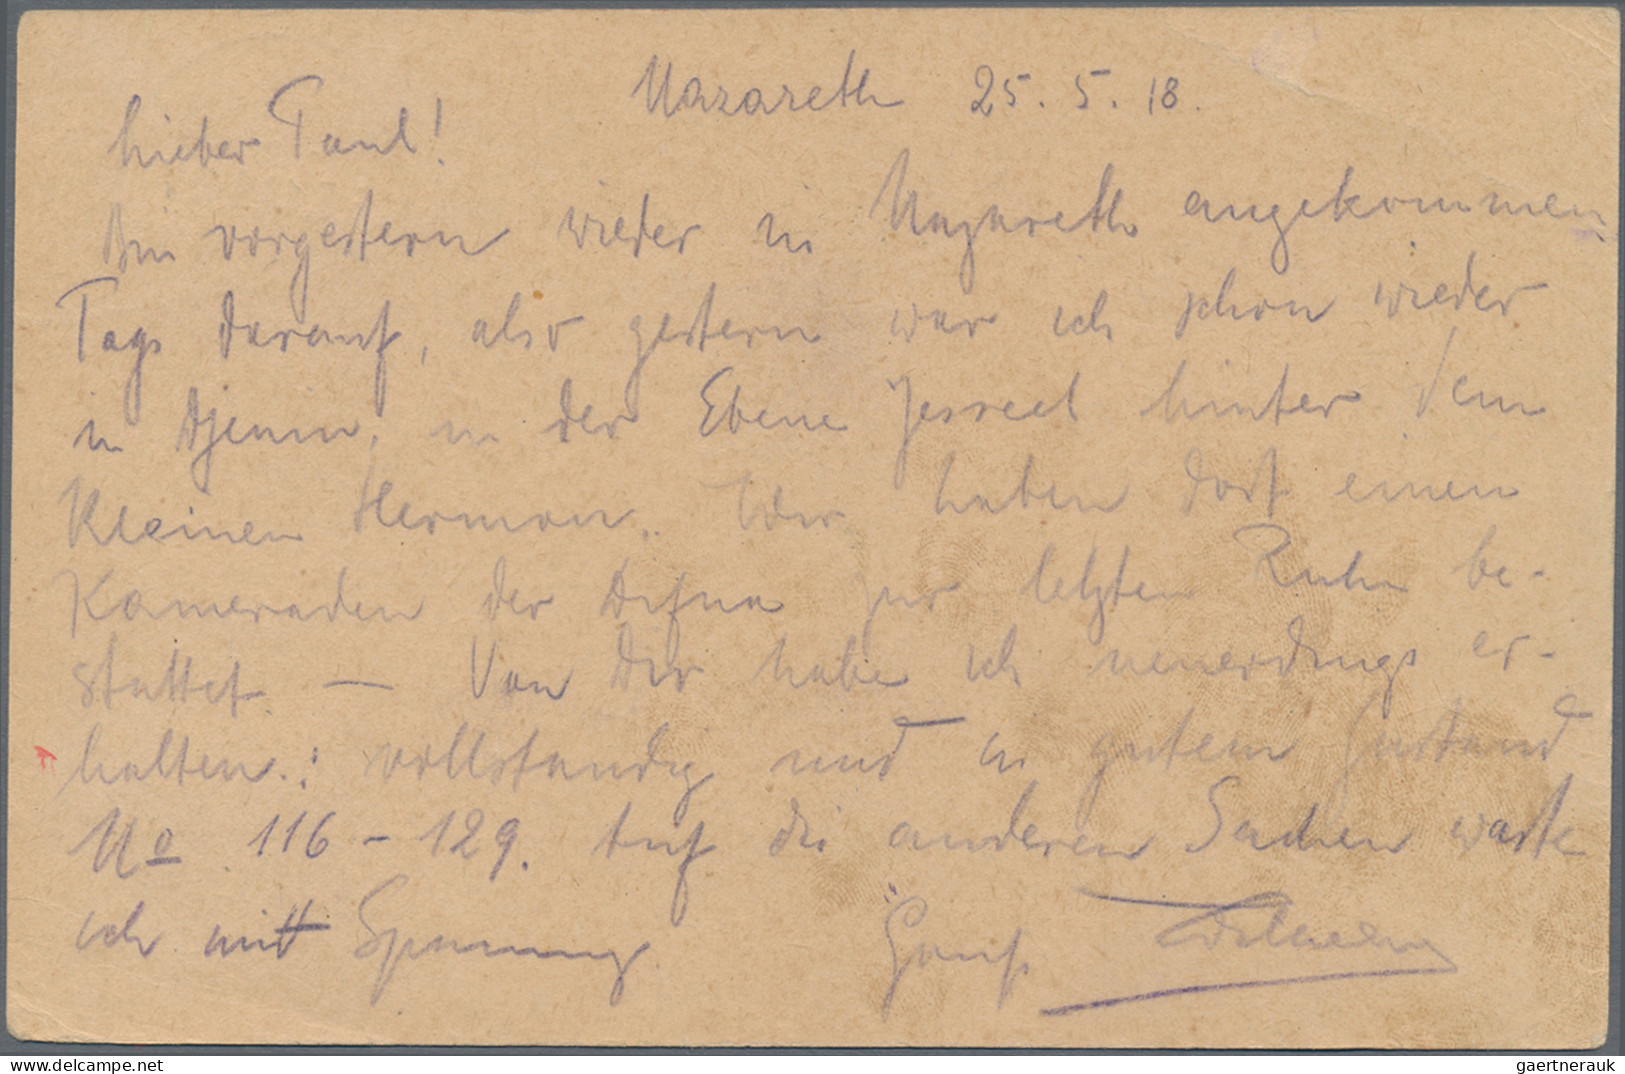 Nazareth 25. 5. 18.
Lieber Paul!
Bin vorgestern wieder in Nazareth angekommen
Tags darauf, also gestern war ich schon wieder
in Djenin, in der Ebene Jesreel hinter dem
Kleinen Hermon. Wir haben dort einen
Kameraden der Difua zur letzten Ruhe be-
stattet. — Von Dir habe ich neuerdings er-
halten.: vollständig und in gutem Zustand
No 116 - 129. Auf die anderen Sachen warte
ich mit Spannung.
Gruß Wilhelm
www.delcampe.net
gaertnerauk